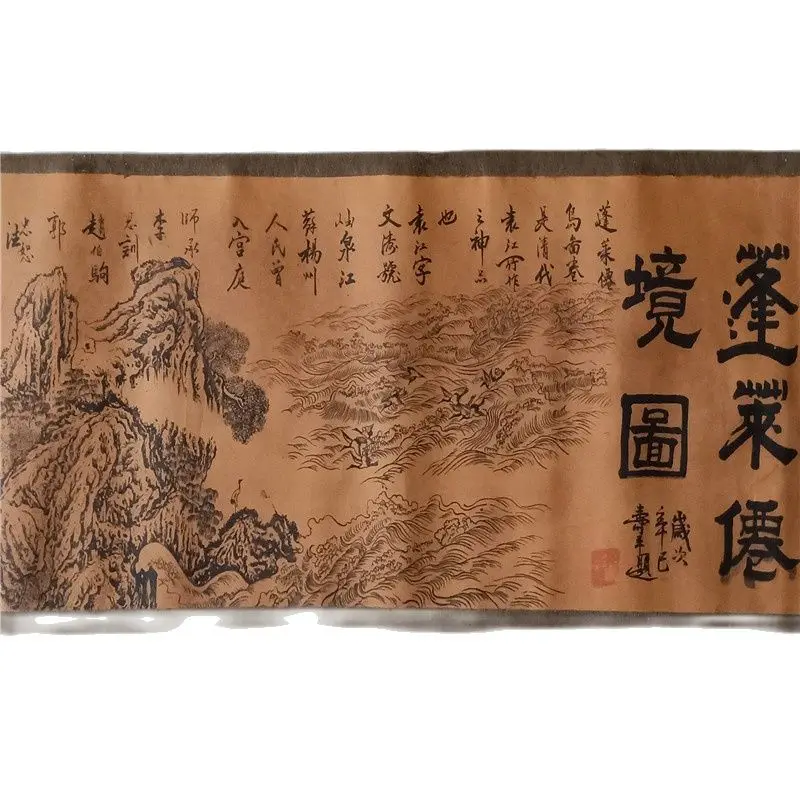 蓬萊僊
境圖
歲次
辛巳
壽平題
蓬萊僊
島畵卷
是清代
袁江所作
之神品
也
袁江字
文濤號
岫泉江
蘇楊州
人民曾
入宮庭
師承
李
思訓
趙伯駒
郭
忠恕
法